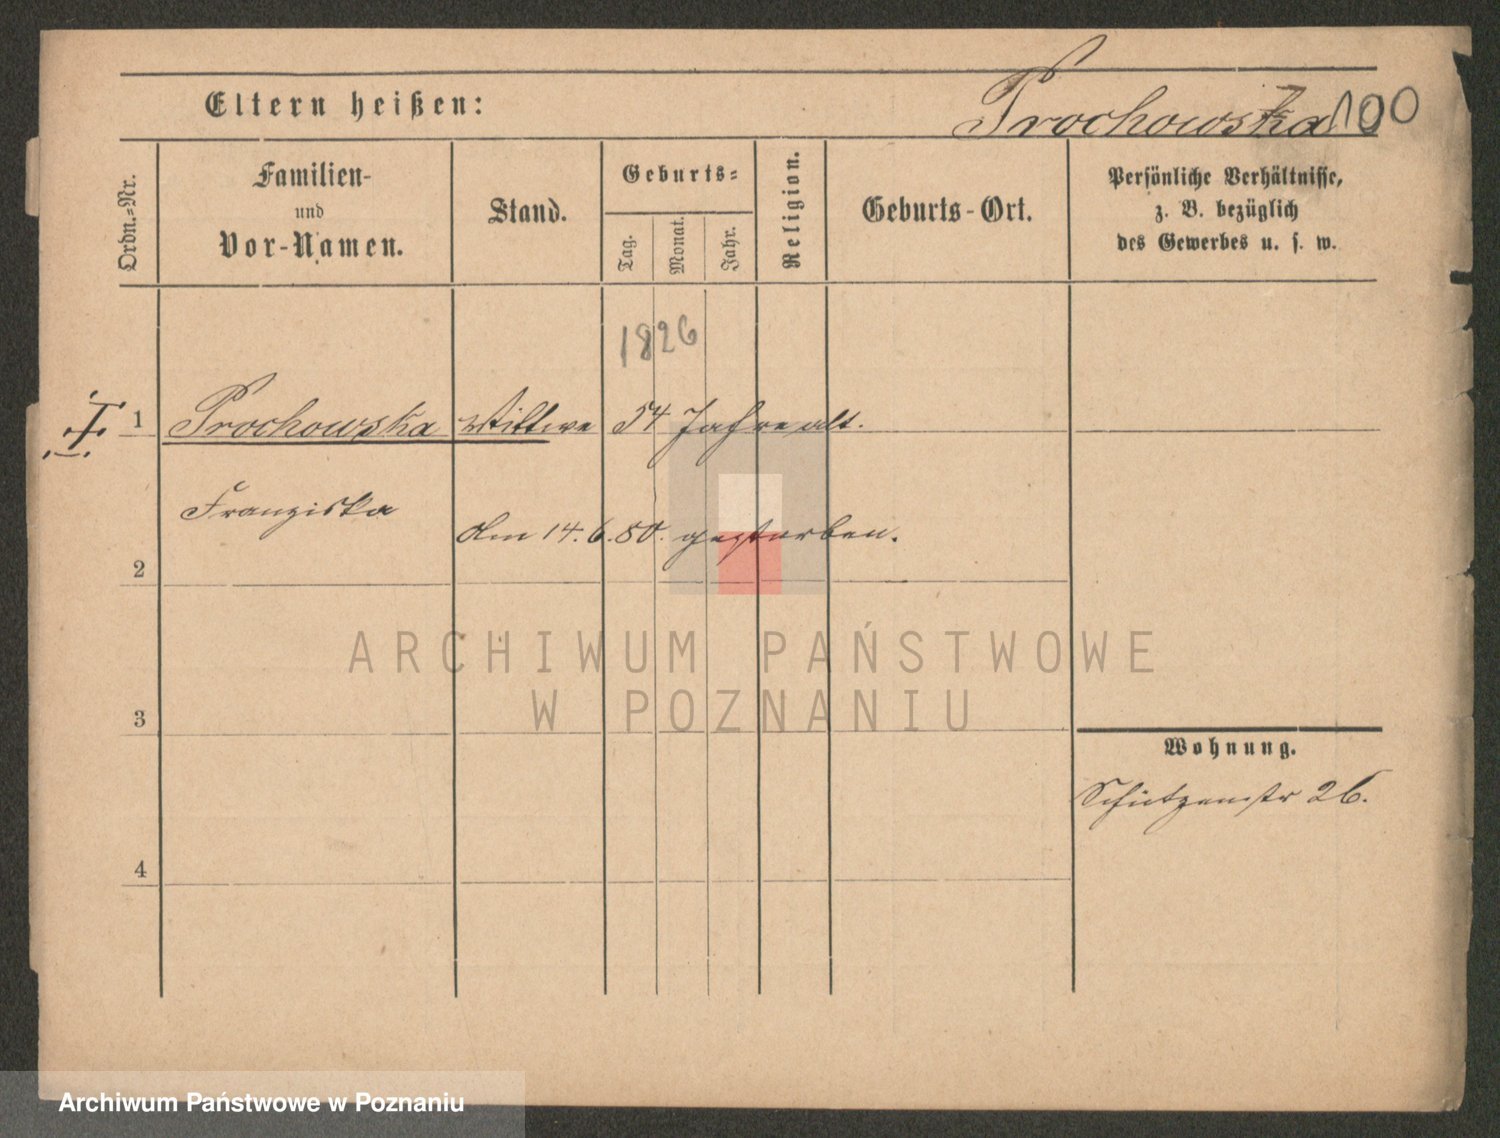 Eltern heißen:
Prochowska 100
Ordn.-Nr.
Familien-
und
Vor-Namen.
Stand.
Geburts-
Tag.
Monat.
Jahr.
Religion.
Geburts-Ort.
Persönliche Verhältnisse,
z. B. bezüglich
des Gewerbes u. s. w.
1826
1 Prochowska Wittwe 54 Jahre alt.
Franziska
Am 14.6.80. gestorben.
2
ARCHIWUM PAŃSTWOWE
W POZNANIU
3
Wohnung.
Schützenstr 26.
4
Archiwum Państwowe w Poznaniu